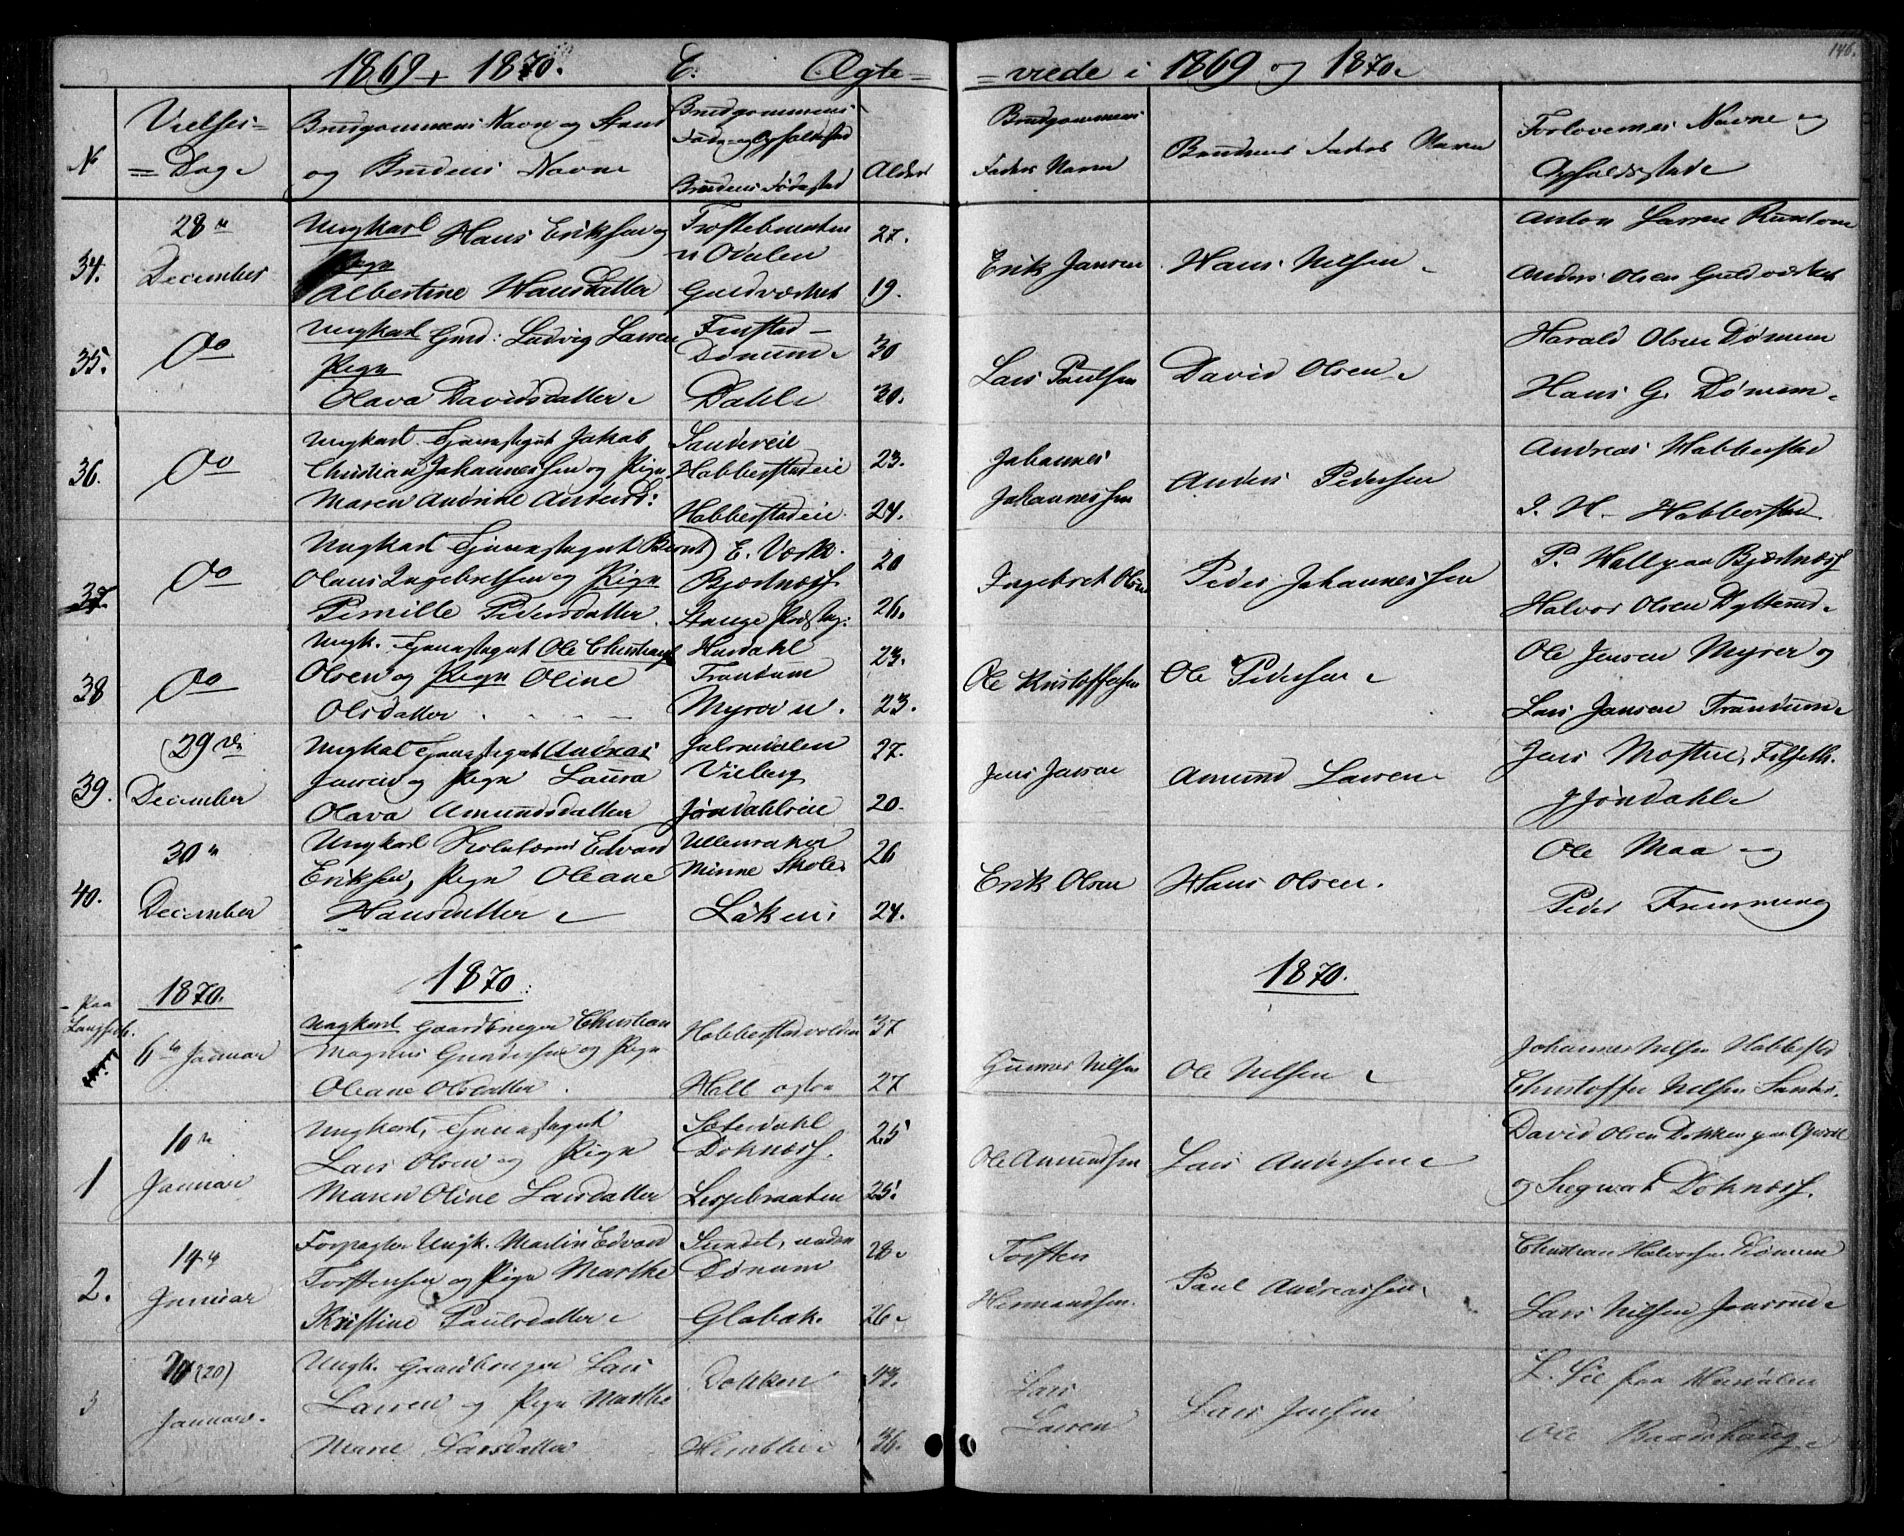 146.
1869 + 1870. C. Ægte=
=viede i 1869 og 1870.
N
Vielses=
=Dage
Brudgommens Navn og Stand
og Brudens Navne
Brudgommens
Føde- og Opholdssted
Brudens Fødested
Alder
Brudgommens
Faders Navn
Brudens Faders Navn
Forlovernes Navne og
Opholdsstæde
34.
28de
December
Ungkarl Hans Eriksen og
Pige
Albertine Hansdatter
Guldværket
27.
19.
Erik Jansen
Hans Nilsen
Anton Larsen
Anders Olsen Guldværket
35.
Do
Ungkarl Gmd: Ludvig Larsen
Pige
Olava Davidsdatter
Finstad
Dønnum
Dahl
30
30.
Lars Paulsen
David Olsen
Harald Olsen Dønnum
Hans G. Dønnum
36.
Do
Ungkarl Tjenestegut Jakob
Christian Johannessen og Pige
Maren Andrine Andersd:
Sandereie
Habberstadeie
Habberstadeie
23.
24.
Johannes
Johannessen
Anders Pedersen
Andreas Habberstad
J. H. Habberstad
37.
Do
Ungkarl Tjenestegut Bernt
Olaus Ingebretsen og Pige
Pernille Pedersdatter
E. Værk.
Bjørtnæss
Stange Præsteg:
20
26.
Ingebret Olsen
Peder Johannessen
P. Hall paa Bjørtnæss
Halvor Olsen Dytterud
38
Do
Ungk. Tjenestegut Ole Christian
Olsen og Pige Oline
Olsdatter
Hurdahl
Trandum
Myrer
23.
23.
Ole Kristoffersen
Ole Pedersen
Ole Jensen Myrer og
Lars Jansen Trandum
39.
29de
December
Ungkarl Tjenestegut Andreas
Jensen og Pige Laura
Olava Amundsdatter
Vilberg
Jøndahlseie
27.
20.
Jens Jensen
Amund Larsen
Jens Mostue, Feiring
Jøndahl
40.
30te
December
Ungkarl Edvard
Eriksen, Pige Oleane
Hansdatter
Ullensaker
Minne Skole
Løken
26
24.
Erik Olsen
Hans Olsen.
Ole Maa og
Peder Fremming
1870.
1870
1870.
paa
Langset.
6te Januar
Ungkarl Gaardbruger Christian
Magnus Gundersen og Pige
Oleane Olsdatter
Habberstadvolden
Hall
37
27
Gunner Nilsen
Ole Nilsen
Johannes Nilsen Habberstad
Christoffer Nilsen Sander
1
10de
Januar
Ungkarl, Tjenestegut
Lars Olsen og Pige
Maren Oline Larsdatter
Sæterdahl
Doknæss.
Lespebraaten
25
25.
Ole Amundsen
Lars Andersen
David Olsen Dokken paa
og Siegwart Doknæss.
2.
14de
Januar
Forpagter Ungk. Martin Edvard
Torstensen og Pige Marthe
Kristine Paulsdatter
Sundet, under
Dønnum
Globak.
28
26
Torsten
Hermandsen.
Paul Andreassen
Christian Halvorsen Dønnum
Lars Nilsen Jonsrud
3
20 (20)
Januar.
Ungk. Gaardbruger Lars
Larsen og Pige Marthe
Marie Larsdatter
Dokken
43.
36.
Lars
Larsen
Lars Jensen
Ole Baardshaug